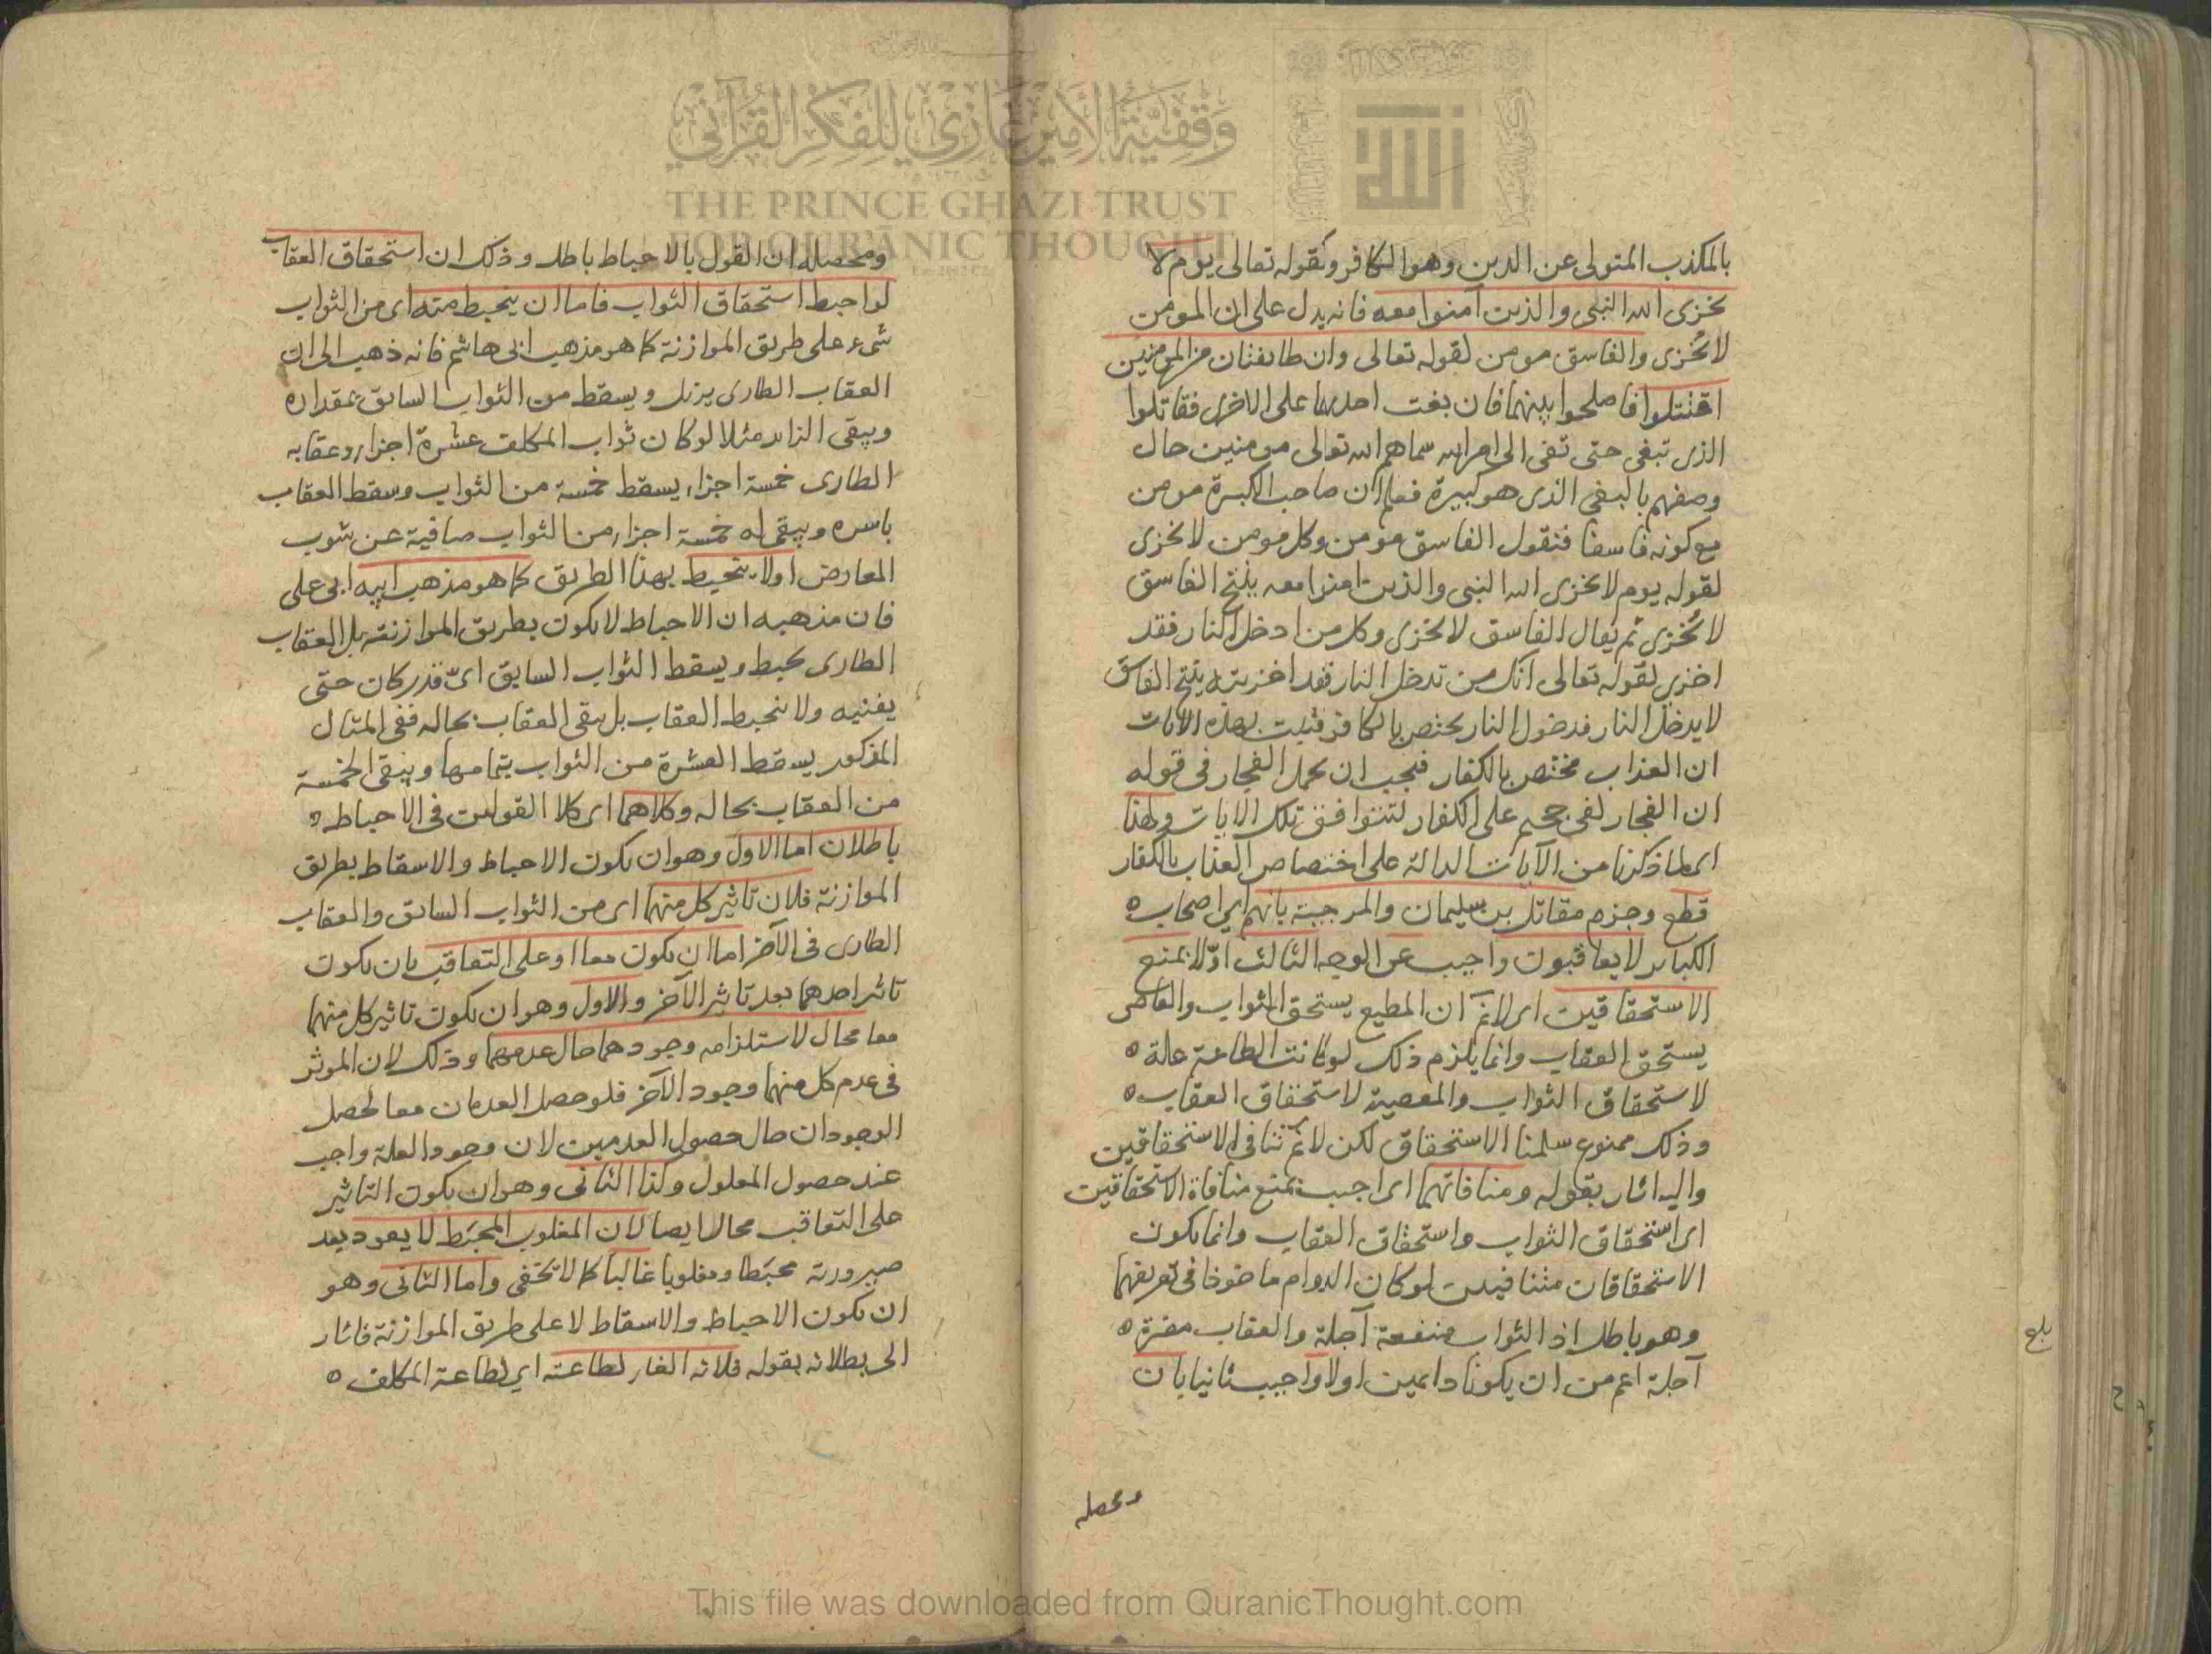 بالمكذب المتولى عن الدين وهو الكافر وكقوله تعالى يوم لا
يخزى الله النبى والذين آمنوا معه فانه يدل على ان المومن
لا يُخزى والفاسق مومن لقوله تعالى وان طايفتان من المومنين
اقتتلوا فاصلحوا بينهما فان بغت احديهما على الاخرى فقاتلوا
الذى تبغى حتى تفى الى امر الله سماهم الله تعالى مومنين حال
وصفهم بالبغى الذى هو كبيرة فعلم ان صاحب الكبيرة مومن
مع كونه فاسقا فنقول الفاسق مومن وكل مومن لا يخزى
لقوله يوم لا يخزى الله النبى والذين امنوا معه ينتج الفاسق
لا يُخزى ثم يقال الفاسق لا يخزى وكل من ادخل النار فقد
اخزى لقوله تعالى انك من تدخل النار فقد اخزيته ينتج الفاسق
لا يدخل النار فدخول النار يختص بالكافر فثبت بهذه الايات
ان العذاب مختص بالكفار فيجب ان يحمل الفجار فى قوله
ان الفجار لفى جحيم على الكفار لتتوافق تلك الايات ولهذا
اى لما ذكرنا من الآيات الدالة على اختصاص العذاب بالكفار
قطع وجزم مقاتل بن سليمان والمرجية بانهم اى اصحاب
الكباير لا يعاقبون واجيب عن الوجه الثالث اوّلا بمنع
الاستحقاقين اى لانم ان المطيع يستحق الثواب والعاصى
يستحق العقاب وانما يلزم ذلك لو كانت الطاعة علة
لاستحقاق الثواب والمعصية لاستحقاق العقاب
وذلك ممنوع سلمنا الاستحقاق لكن لانم تنافى الاستحقاقين
واليه اشار بقوله ومنافاتهما اى اجيب بمنع منافاة الاستحقاقين
اى استحقاق الثواب واستحقاق العقاب وانما يكون
الاستحقاقان متنافيين لو كان الدوام ماخوذا فى تعريفهما
وهو باطل اذ الثواب منفعة آجلة والعقاب مضرة
آجلة اعم من ان يكونا دايمين اولا واجيب ثانيا بان
ومحصله
بلغ
ومحصله ان القول بالاحباط باطل وذلك ان استحقاق العقاب
لو احبط استحقاق الثواب فاما ان ينحبط منه اى من الثواب
شىء على طريق الموازنة كما هو مذهب ابى هاشم فانه ذهب الى ان
العقاب الطارى يزيل ويسقط من الثواب السابق بمقداره
ويبقى الزايد مثلا لو كان ثواب المكلف عشرة اجزاء وعقابه
الطارى خمسة اجزاء يسقط خمسة من الثواب وسقط العقاب
باسره ويبقى له خمسة اجزاء من الثواب صافية عن شوب
المعارض اولا ينحبط بهذا الطريق كما هو مذهب ابيه ابى على
فان مذهبه ان الاحباط لا يكون بطريق الموازنة بل العقاب
الطارى يحبط ويسقط الثواب السابق اىّ قدر كان حتى
يفنيه ولا ينحبط العقاب بل يبقى العقاب بحاله ففى المثال
المذكور يسقط العشرة من الثواب بتمامها ويبقى الخمسة
من العقاب بحاله وكلاهما اى كلا القولين فى الاحباط
باطلان اما الاول وهو ان يكون الاحباط والاسقاط بطريق
الموازنة فلان تاثير كل منهما اى من الثواب السابق والعقاب
الطارى فى الآخر اما ان يكون معا او على التعاقب بان يكون
تاثير احدهما بعد تاثير الآخر والاول وهو ان يكون تاثير كل منهما
معا محال لاستلزامه وجودهما حال عدمهما وذلك لان الموثر
فى عدم كل منهما وجود الآخر فلو حصل العدمان معا لحصل
الوجودان حال حصول العدمين لان وجود العلة واجب
عند حصول المعلول وكذا الثانى وهو ان يكون التاثير
على التعاقب محال ايضا لان المغلوب المحبَط لا يعود بعد
صيرورته محبَطا ومغلوبا غالبا كما لا يخفى واما الثانى وهو
ان يكون الاحباط والاسقاط لا على طريق الموازنة فاشار
الى بطلانه بقوله فلانه الغاء لطاعته اى لطاعة المكلف
وقفية الأمير غازي للفكر القرآني
THE PRINCE GHAZI TRUST
FOR QUR'ANIC THOUGHT
This file was downloaded from QuranicThought.com